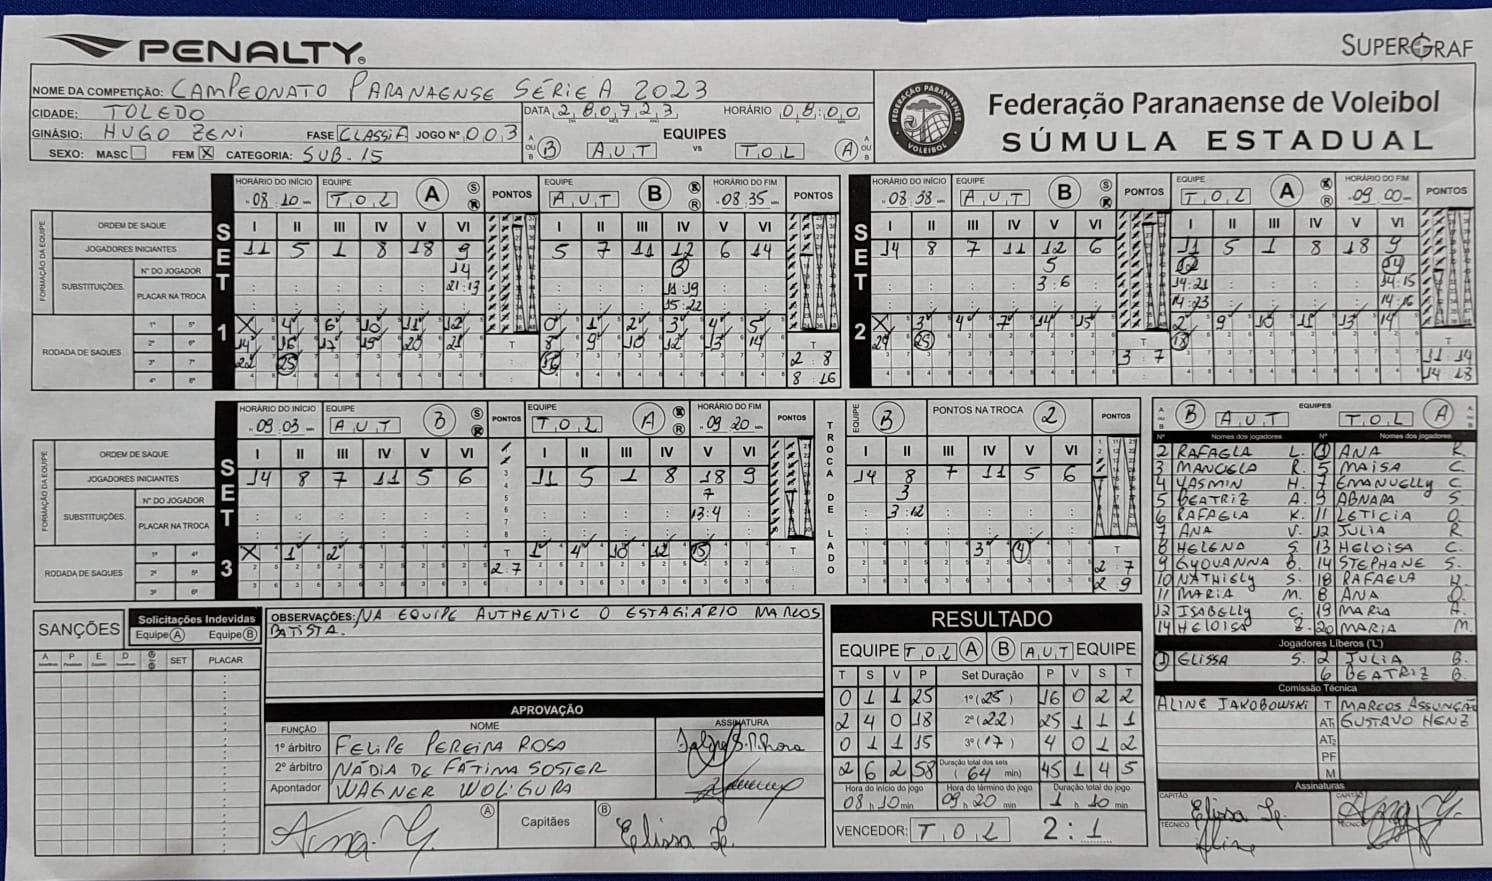 PENALTY
SUPERGRAF
NOME DA COMPETIÇÃO: CAMPEONATO PARANAENSE SÉRIE A 2023
CIDADE: TOLEDO DATA 28 07 23 HORÁRIO 08:00
GINÁSIO: HUGO ZENI FASE CLASSIF JOGO Nº 003
SEXO: MASC FEM X CATEGORIA: SUB-15
EQUIPES
A OU B B A.U.T VS T.O.L A A OU B
Federação Paranaense de Voleibol
SÚMULA ESTADUAL
FEDERAÇÃO PARANAENSE VOLEIBOL
SET 1
HORÁRIO DO INÍCIO 08:10 EQUIPE T.O.L A S R PONTOS EQUIPE A.U.T B S R HORÁRIO DO FIM 08:35 PONTOS
FORMAÇÃO DA EQUIPE
ORDEM DE SAQUE I II III IV V VI I II III IV V VI
JOGADORES INICIANTES 11 5 1 8 18 9 5 7 11 12 6 14
SUBSTITUIÇÕES Nº DO JOGADOR 14
PLACAR NA TROCA 21:13 11:19
15:22
RODADA DE SAQUES 1º 5º X 4 6 10 11 12 0 1 2 3 4 5
2º 6º 14 16 17 19 20 21 8 9 10 12 13 14 T
3º 7º 22 25 16 2:8
4º 8º 8:16
SET 2
HORÁRIO DO INÍCIO 08:38 EQUIPE A.U.T B S R PONTOS EQUIPE T.O.L A S R HORÁRIO DO FIM 09:00 PONTOS
I II III IV V VI I II III IV V VI
14 8 7 11 12 6 11 5 1 8 18 9
5 12 14
3:6 14:21 14:15
14:23 14:16
X 3 4 7 14 15 2 9 10 11 13 14
24 25 T 18 T
3:7 11:14
14:18
SET 3
HORÁRIO DO INÍCIO 09:03 EQUIPE A.U.T B S R PONTOS EQUIPE T.O.L A S R HORÁRIO DO FIM 09:20 PONTOS
TROCA DE LADO
EQUIPE B PONTOS NA TROCA 2 PONTOS
FORMAÇÃO DA EQUIPE
ORDEM DE SAQUE I II III IV V VI I II III IV V VI I II III IV V VI
JOGADORES INICIANTES 14 8 7 11 5 6 11 5 1 8 18 9 14 8 7 11 5 6
SUBSTITUIÇÕES Nº DO JOGADOR 7 3
PLACAR NA TROCA 13:4 3:12
RODADA DE SAQUES 1º 4º X 1 2 T 1 4 10 12 15 T 3 4 T
2º 5º 2:7 2:7
3º 6º 2:9
A OU B B A.U.T EQUIPES T.O.L A A OU B
Nº Nomes dos jogadores Nº Nomes dos jogadores
2 RAFAELA L. 1 ANA K.
3 MANOELA R. 5 MAISA C.
4 YASMIN H. 7 EMANUELLY C
5 BEATRIZ A. 9 ABNARA S.
6 RAFAELA K. 11 LETICIA O.
7 ANA V. 12 JULIA R
8 HELENA S. 13 HELOISA C.
9 GYOVANNA B. 14 STEPHANE S.
10 NATHIELY S. 18 RAFAELA H.
11 MARIA M. 8 ANA O.
12 ISABELLY C. 19 MARIA A.
14 HELOISA Z. 20 MARIA M.
Jogadores Líberos ("L")
1 ELISSA S. 2 JULIA B.
6 BEATRIZ B.
Comissão Técnica
ALINE JAKOBOWSKI T MARCOS ASSUNÇÃO
AT1 GUSTAVO HENZ
AT2
PF
M
Assinaturas
CAPITÃO CAPITÃO
TÉCNICO Aline TÉCNICO
SANÇÕES
Solicitações Indevidas
Equipe A Equipe B
A P E D SET PLACAR
OBSERVAÇÕES: NA EQUIPE AUTHENTIC O ESTAGIÁRIO MARCOS
BATISTA.
APROVAÇÃO
FUNÇÃO NOME ASSINATURA
1º árbitro FELIPE PEREIRA ROSA
2º árbitro NÁDIA DE FÁTIMA SOSTER
Apontador WAGNER WOLIGURA
A Capitães B
RESULTADO
EQUIPE T.O.L A B A.U.T EQUIPE
T S V P Set Duração P V S T
0 1 1 25 1º (25) 16 0 2 2
2 4 0 18 2º (22) 25 1 1 1
0 1 1 15 3º (17) 4 0 1 2
2 6 2 58 Duração total dos sets (64 min) 45 1 4 5
Hora do início do jogo Hora do término do jogo Duração total do jogo
08 h 10 min 09 h 20 min 1 h 10 min
VENCEDOR: T.O.L 2:1